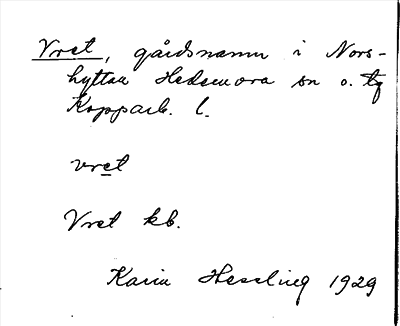 Vret, gårdsnamn i Nors-
hyttan Hedemora sn o. tg
Kopparb. l.
vret
Vret kb.
Karin Hessling 1929